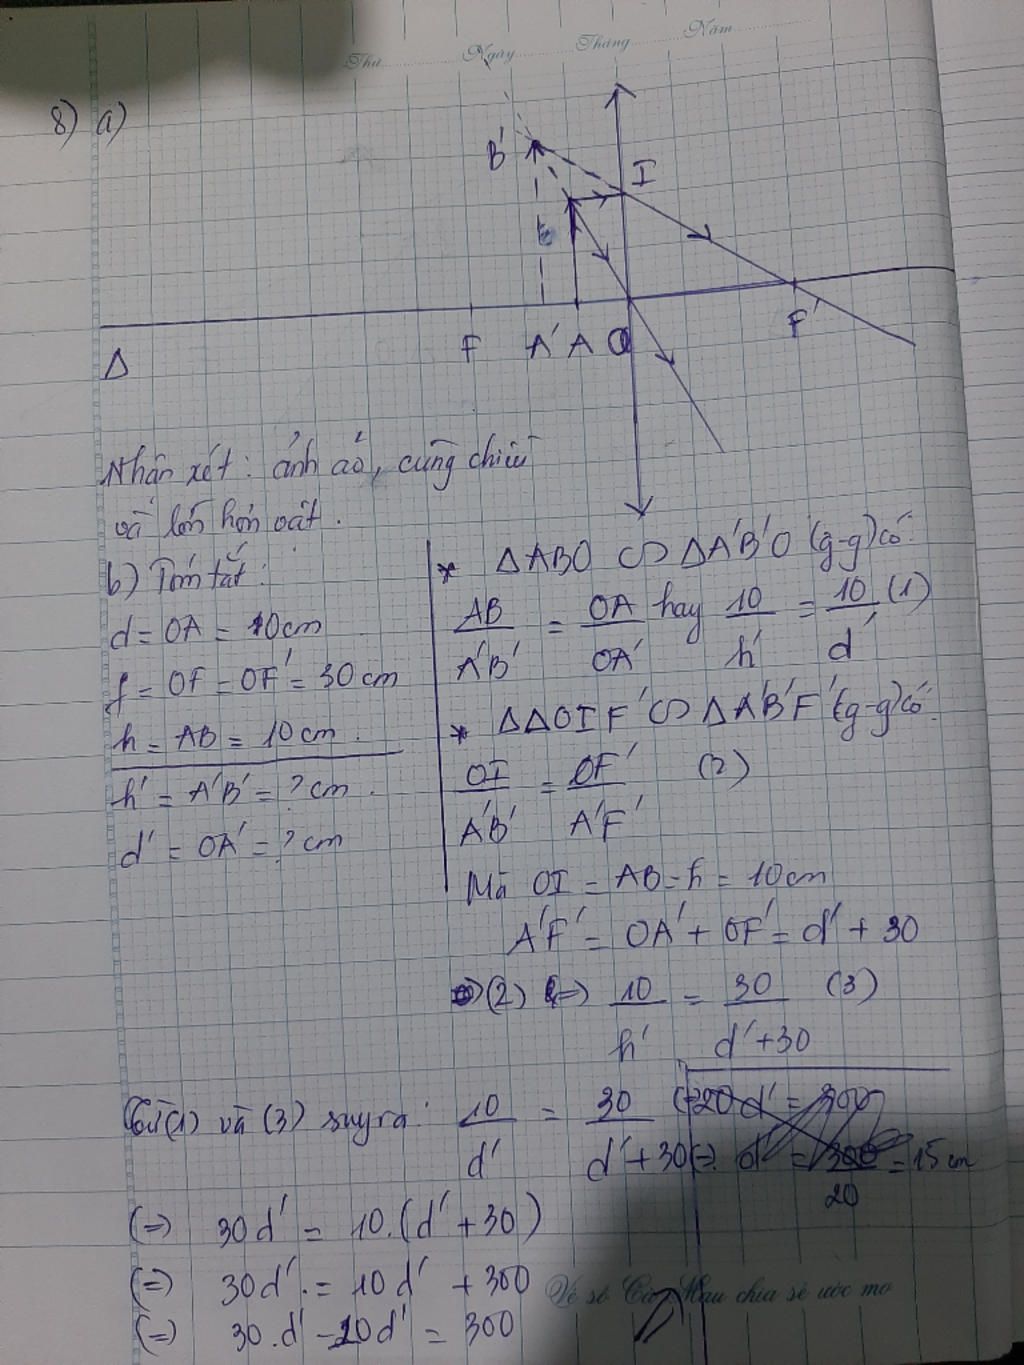 Thứ Ngày Tháng Năm
8) a)
B'
I
F A' A O F'
Δ
Nhận xét: ảnh ảo, cùng chiều
và lớn hơn vật.
b) Tóm tắt:
d = OA = 10cm
f = OF = OF' = 30 cm
h = AB = 10 cm.
h' = A'B' = ? cm.
d' = OA' = ? cm
* ΔABO ∽ ΔA'B'O (g-g) có:
AB/A'B' = OA/OA' hay 10/h' = 10/d' (1)
* ΔΔOIF' ∽ ΔA'B'F' (g-g) có:
OI/A'B' = OF'/A'F' (2)
Mà OI = AB = h = 10cm
A'F' = OA' + OF' = d' + 30
(2) (=) 10/h' = 30/d'+30 (3)
Từ (1) và (3) suy ra: 10/d' = 30/d'+30
(=) 30d' = 10.(d' + 30)
(=) 30d' = 10d' + 300
(=) 30.d' - 10d' = 300
(=) 20d' = 300
(=) d' = 300/20 = 15 cm
Vé số Cà Mau chia sẻ ước mơ